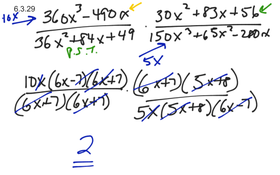 6.3.29
10x → 360x³ - 490x / 36x² + 84x + 49 · 30x² + 83x + 56 / 150x³ + 65x² - 280x
P.S.T.
5x
10x(6x-7)(6x+7) / (6x+7)(6x+7) · (6x+7)(5x+8) / 5x(5x+8)(6x-7)
2